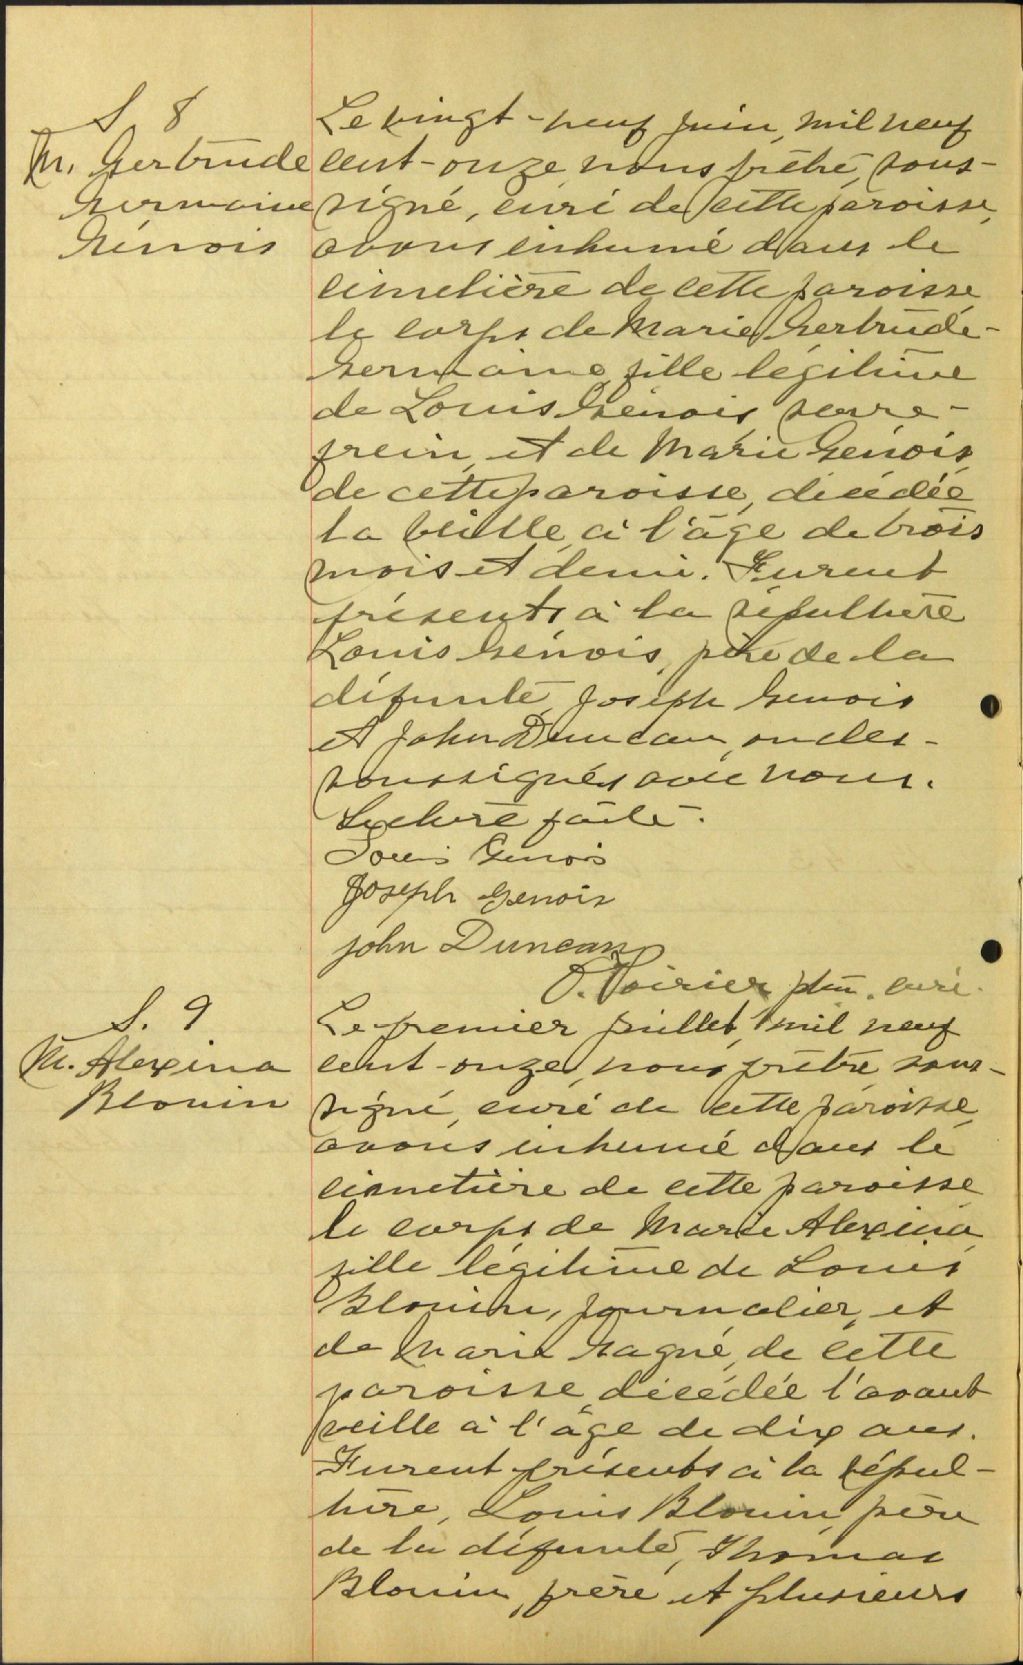 S 8
M. Gertrude
Germaine
Génois
Le vingt-neuf juin, mil neuf
cent-onze, nous prêtre, sous-
signé, curé de cette paroisse,
avons inhumé dans le
cimetière de cette paroisse
le corps de Marie Gertrude-
Germaine, fille légitime
de Louis Génois, serre-
frein, et de Marie Génois
de cette paroisse, décédée
la veille, à l'âge de trois
mois et demi. Furent
présents à la sépulture
Louis Génois, père de la
défunte, Joseph Genois
et John Duncan, oncles-
soussignés avec nous.
Lecture faite.
Louis Genois
Joseph Genois
John Duncan
O. Poirier ptre. curé.
S. 9
M. Alexina
Blouin
Le premier juillet, mil neuf
cent-onze, nous prêtre sous-
signé, curé de cette paroisse,
avons inhumé dans le
cimetière de cette paroisse
le corps de Marie Alexina,
fille légitime de Louis
Blouin, journalier, et
de Marie Gagné, de cette
paroisse, décédée l'avant
veille à l'âge de dix ans.
Furent présents à la sépul-
ture, Louis Blouin, père
de la défunte, Thomas
Blouin, frère et plusieurs